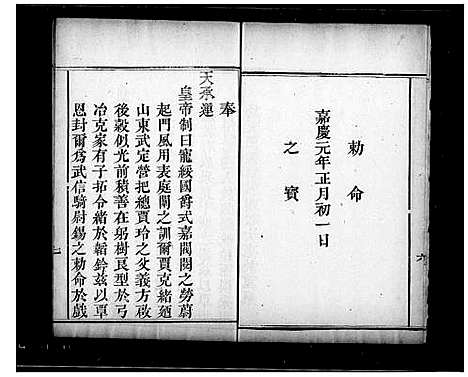 勅命
嘉慶元年正月初一日
之寳
六
奉
天承運
皇帝制曰寵綏國爵式嘉閥閱之勞蔚
起門風用表庭闈之訓爾賈克緒廼
山東武定營把總賈玲之父義方啟
後榖似光前積善在躬樹良型於弓
冶克家有子拓令緒於韜鈐茲以覃
恩封爾為武信騎尉錫之勅命於戲
七